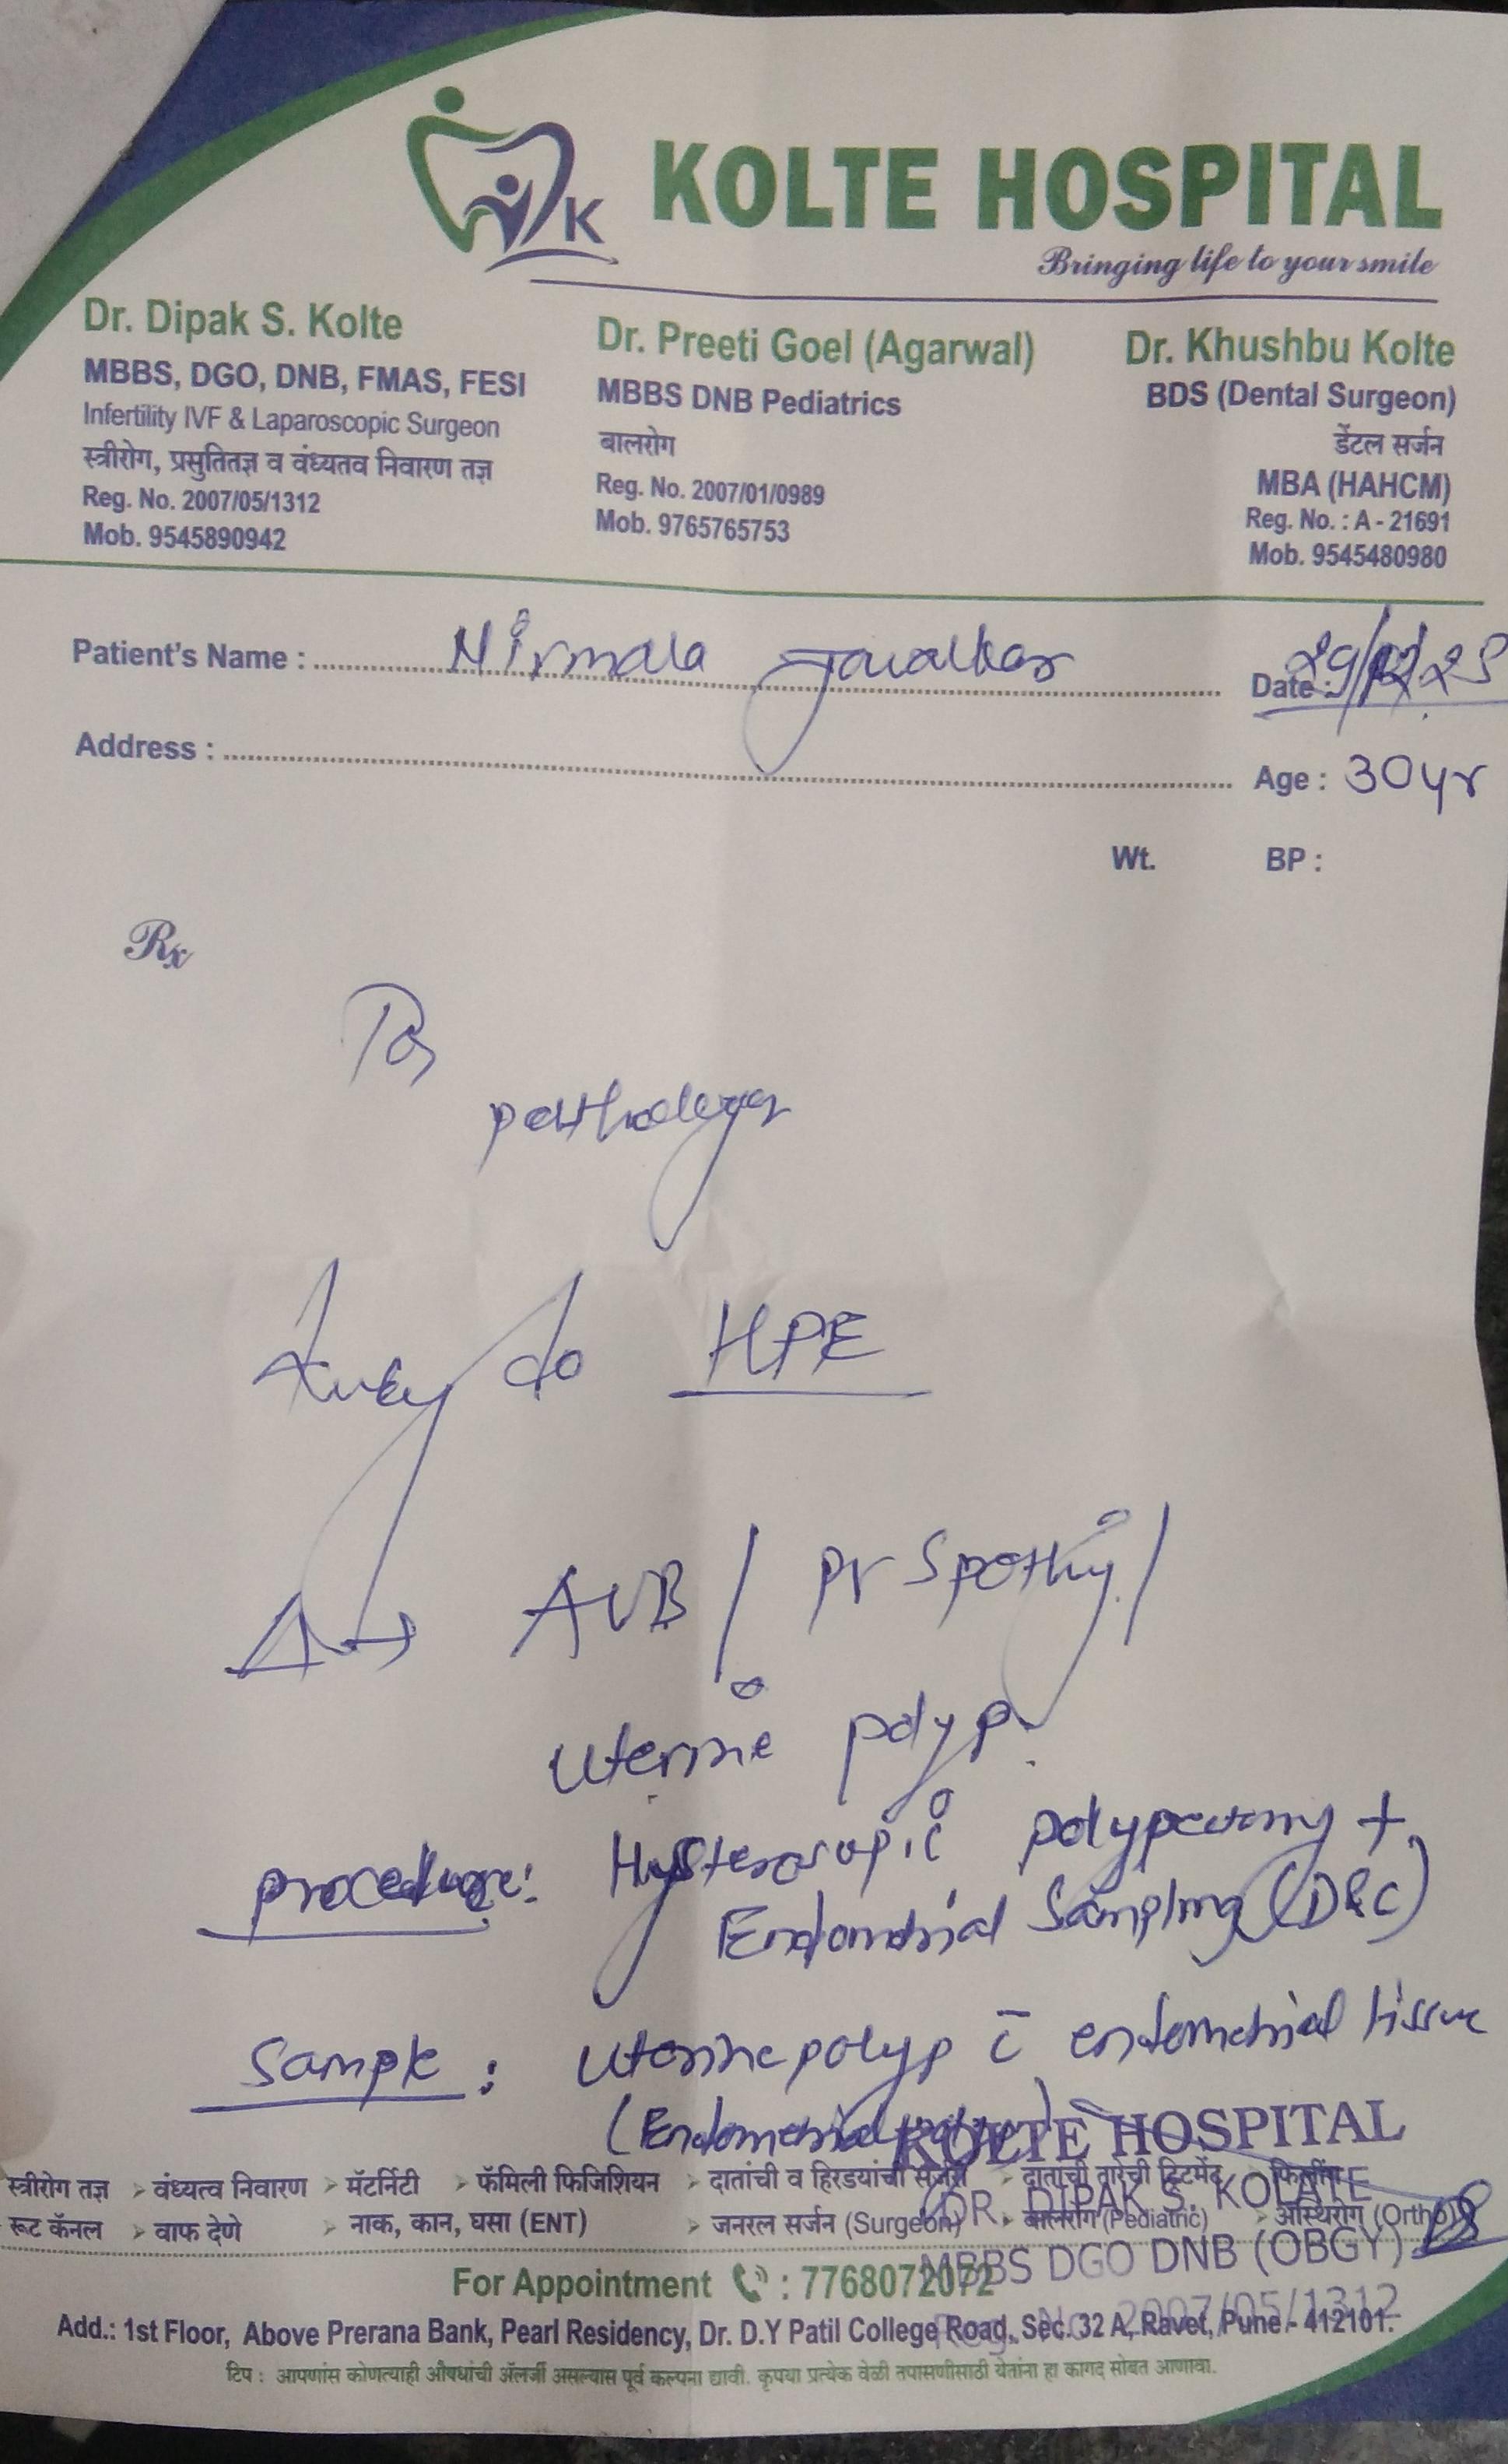 K
KOLTE HOSPITAL
Bringing life to your smile
Dr. Dipak S. Kolte
MBBS, DGO, DNB, FMAS, FESI
Infertility IVF & Laparoscopic Surgeon
स्त्रीरोग, प्रसुतितज्ञ व वंध्यतव निवारण तज्ञ
Reg. No. 2007/05/1312
Mob. 9545890942
Dr. Preeti Goel (Agarwal)
MBBS DNB Pediatrics
बालरोग
Reg. No. 2007/01/0989
Mob. 9765765753
Dr. Khushbu Kolte
BDS (Dental Surgeon)
डेंटल सर्जन
MBA (HAHCM)
Reg. No. : A - 21691
Mob. 9545480980
Patient's Name : Nirmala Javalkar Date : 29/12/25
Address : Age : 30yr
Wt. BP :
Rx
To
do HPE
Δ → AUB / PV Spotting /
Uterine polyp
procedure: Hysteroscopic polypectomy +
Endometrial Sampling (D&C)
Sample : Uterine polyp c̄ endometrial tissue
(Endometrial
KOLTE HOSPITAL
DR. DIPAK S. KOLATE
MBBS DGO DNB (OBGY)
Reg. No. 2007/05/1312
स्त्रीरोग तज्ञ > वंध्यत्व निवारण > मॅटर्निटी > फॅमिली फिजिशियन > दातांची व हिरडयांची सर्जरी > दातांची तारेची ट्रिटमेंट > फिलींग
रूट कॅनल > वाफ देणे > नाक, कान, घसा (ENT) > जनरल सर्जन (Surgeon) > बालरोग (Pediatric) > अस्थिरोग (Ortho)
For Appointment : 7768072072
Add.: 1st Floor, Above Prerana Bank, Pearl Residency, Dr. D.Y Patil College Road, Sec. 32 A, Ravet, Pune - 412101.
टिप : आपणांस कोणत्याही औषधांची ॲलर्जी असल्यास पूर्व कल्पना द्यावी. कृपया प्रत्येक वेळी तपासणीसाठी येतांना हा कागद सोबत आणावा.